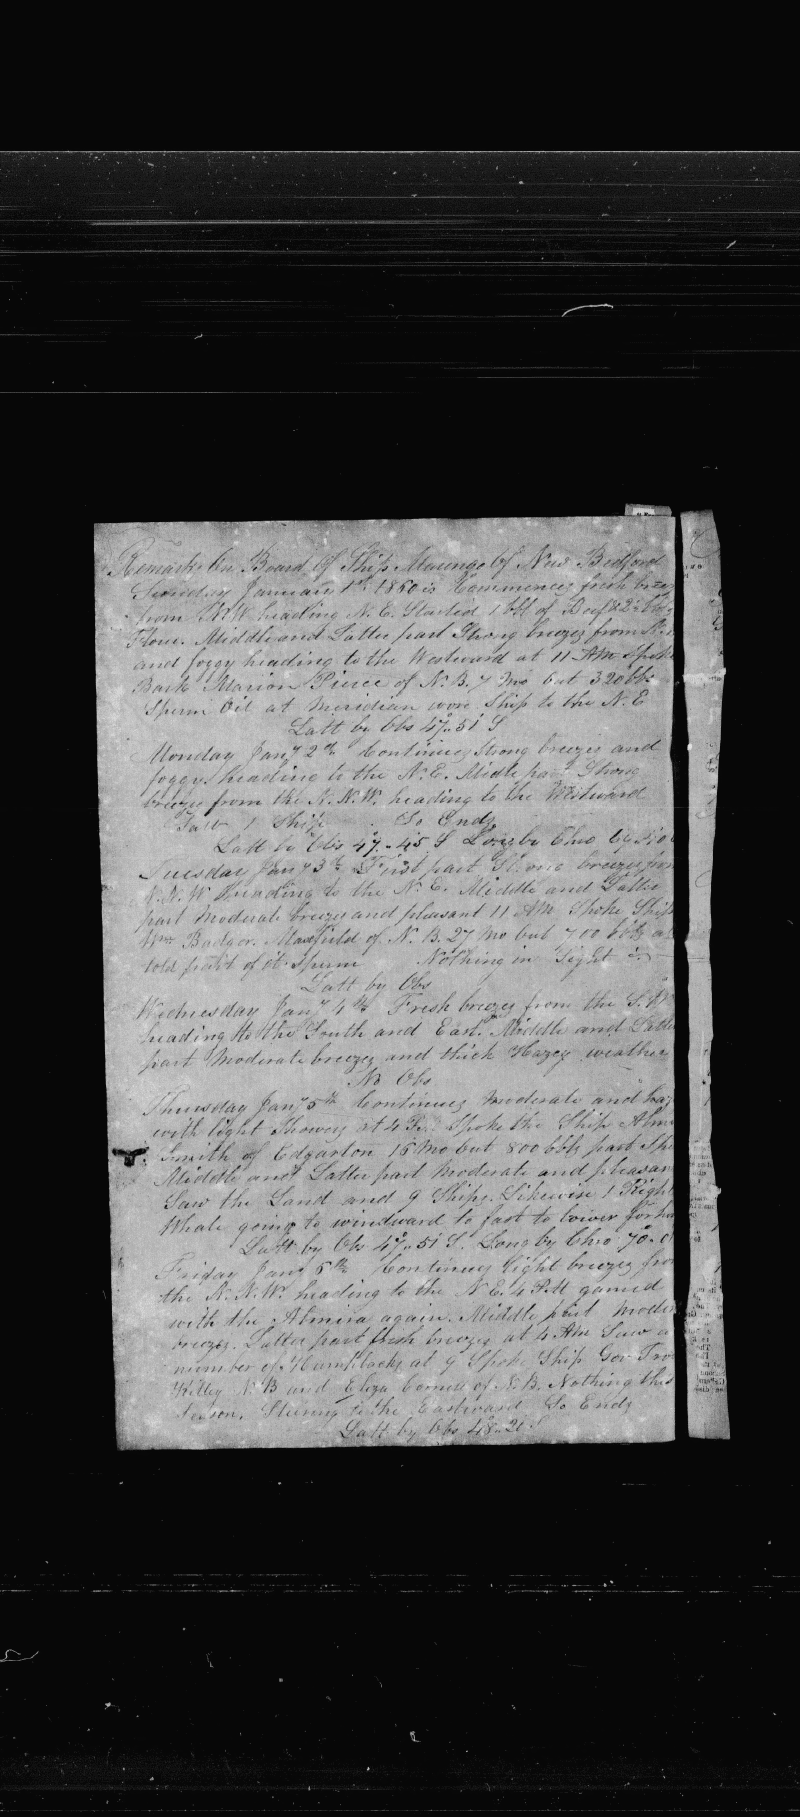 Remarks On Board Of Ship Marengo of New Bedford
Sunday January 1st 1860 is Commences fresh
from heading N. E. Started 1 bbl of Beef & 2
Flour. Middle and Latter part Strong breezes from
and foggy heading to the Westward at 11 AM Spoke
Bark Marion Pierce of N. B. 7 Mo but 320 bbls
Sperm Oil at Meridian wore Ship to the N. E
Latt by Obs 47..51 S
Monday Jany 2nd Continues Strong breezes and
foggy heading to the N. E. Midle part Strong
breezes from the N. N. W. heading to the Westward
Saw 1 Ship So Ends
Latt by Obs 47..45 S Long by Chro
Tuesday Jany 3rd First part Strong breezes from
N. N. W heading to the N. E. Middle and Latter
part Moderate breezes and pleasant 11 AM Spoke Ship
Wm Badger. Maxfield of N. B. 27 Mo but 700 bbls
told part of it Sperm Nothing in Sight
Latt by Obs
Wednesday Jany 4th Fresh breezes from the S. W
heading to the South and East. Middle and Latter
part Moderate breezes and thick Hazey weather
No Obs
Thursday Jany 5th Continues Moderate and
with light Showers at 4 P. Spoke the Ship Alm
Smith of Edgarton 16 Mo but 800 bbls part
Middle and Latter part Moderate and pleasan
Saw the Land and 9 Ships. Likewise 1 Right
Whale going to windward to fast to lower for
Latt by Obs 47..51 S. Long by Chro 70..
Friday Jany 6th Continues light breezes from
the N. N. W. heading to the N E. 4 P. M gamed
with the Almira again. Middle part moder
breezes. Latter part fresh breezes at 4 AM Saw a
number of Humpbacks at 9 Spoke Ship Gov. Troup
N. B and Eliza Cornell of N. B. Nothing this
Season. Steering to the Eastward So Ends
Latt by Obs 48..21 S